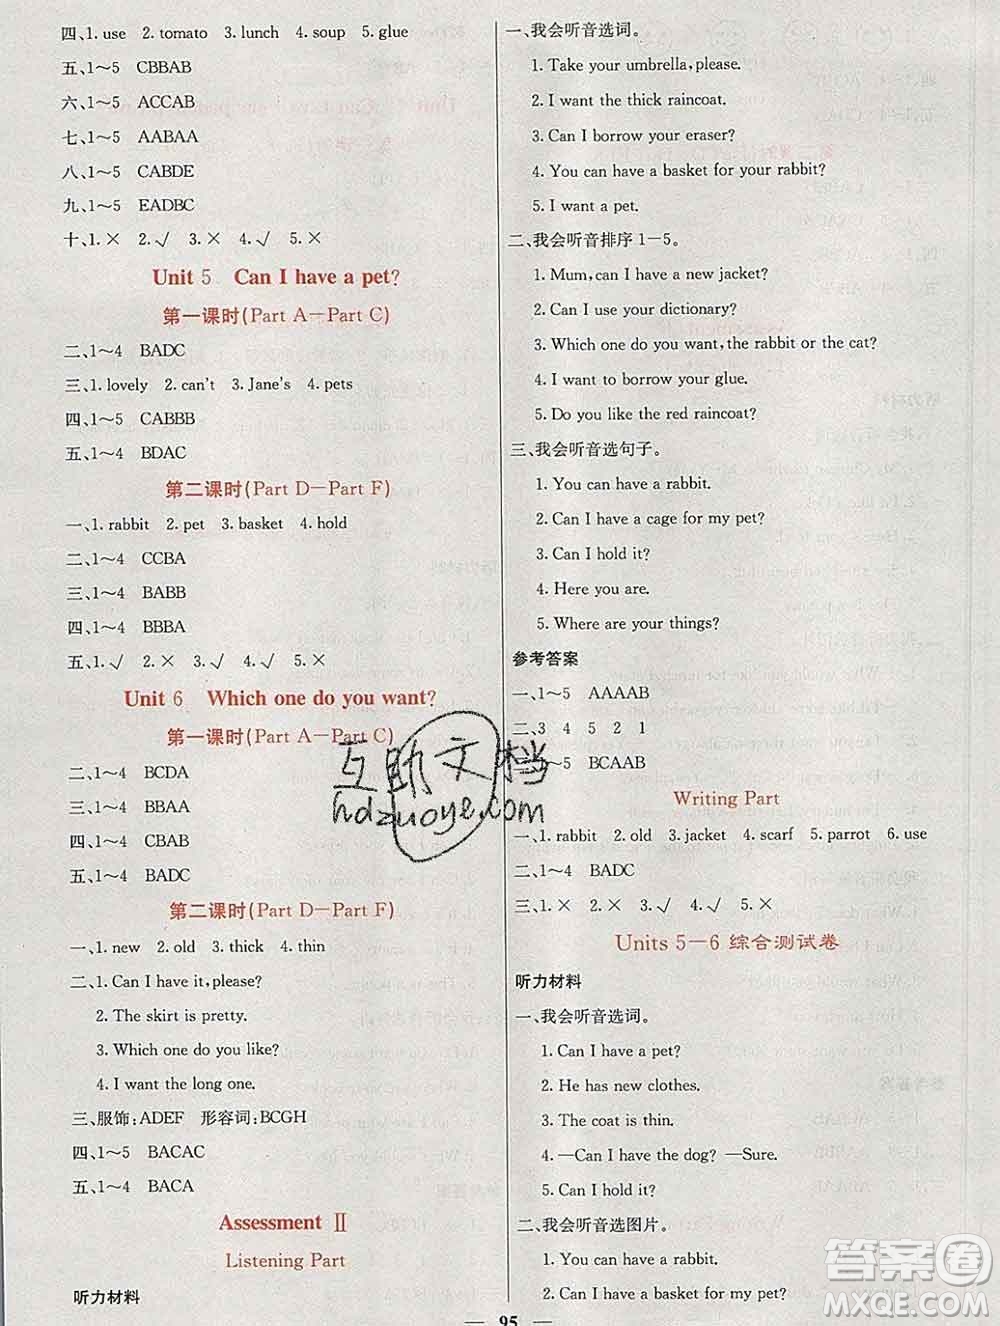 四、1. use 2. tomato 3. lunch 4. soup 5. glue
五、1～5 CBBAB
六、1～5 ACCAB
七、1～5 AABAA
八、1～5 CABDE
九、1～5 EADBC
十、1. × 2. √ 3. × 4. √ 5. ×
Unit 5 Can I have a pet?
第一课时(Part A—Part C)
二、1～4 BADC
三、1. lovely 2. can't 3. Jane's 4. pets
四、1～5 CABBB
五、1～4 BDAC
第二课时(Part D—Part F)
一、1. rabbit 2. pet 3. basket 4. hold
二、1～4 CCBA
三、1～4 BABB
四、1～4 BBBA
五、1. √ 2. × 3. √ 4. √ 5. ×
Unit 6 Which one do you want?
第一课时(Part A—Part C)
二、1～4 BCDA
三、1～4 BBAA
四、1～4 BAAB
五、1～4 BADC
第二课时(Part D—Part F)
一、1. new 2. old 3. thick 4. thin
二、1. Can I have it, please?
2. The skirt is pretty.
3. Which one do you like?
4. I want the long one.
三、服饰:ADEF 形容词:BCGH
四、1～5 BACAC
五、1～4 BACA
Assessment Ⅱ
Listening Part
听力材料
一、我会听音选词。
1. Take your umbrella, please.
2. I want the thick raincoat.
3. Can I borrow your eraser?
4. You can have a basket for your rabbit?
5. I want a pet.
二、我会听音排序 1—5。
1. Mum, can I have a new jacket?
2. Can I use your dictionary?
3. Which one do you want, the rabbit or the cat?
4. I want to borrow your glue.
5. Do you like the red raincoat?
三、我会听音选句子。
1. You can have a rabbit.
2. Can I have a cage for my pet?
3. Can I hold it?
4. Here you are.
5. Where are your things?
参考答案
一、1～5 AAAAB
二、3 4 5 2 1
三、1～5 BCAAB
Writing Part
一、1. rabbit 2. old 3. jacket 4. scarf 5. parrot 6. use
二、1～4 BADC
三、1. × 2. × 3. √ 4. √ 5. ×
Units 5—6 综合测试卷
听力材料
一、我会听音选词。
1. Can I have a pet?
2. He has new clothes.
3. The coat is thin.
4. —Can I have the dog? —Sure.
5. Can I hold it?
二、我会听音选图片。
1. You can have a rabbit.
2. Can I have a basket for my pet?
— 95 —
互助文档
hdzuoye.com
答案圈
MXQE.COM